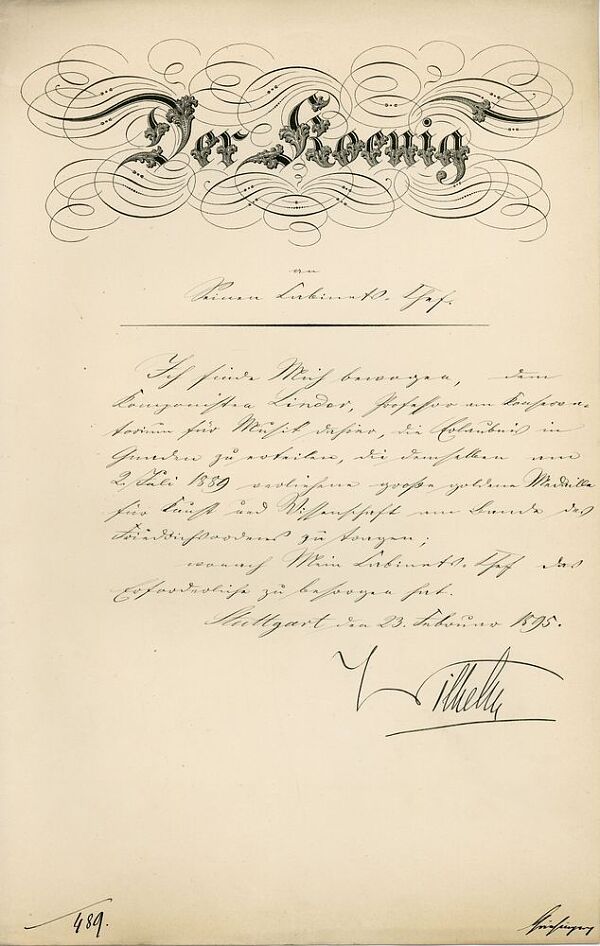 Der Koenig
an
Seinen Cabinets-Chef.
Ich finde Mich bewogen, dem
Komponisten Linder, Professor am Konserva-
torium für Musik dahier, die Erlaubnis in
Gnaden zu erteilen, die demselben am
2. Juli 1889 verliehene große goldene Medaille
für Kunst und Wissenschaft am Bande des
Friedrichsordens zu tragen;
wonach Mein Cabinets-Chef das
Erforderliche zu besorgen hat.
Stuttgart den 23. Februar 1895.
Wilhelm
489.